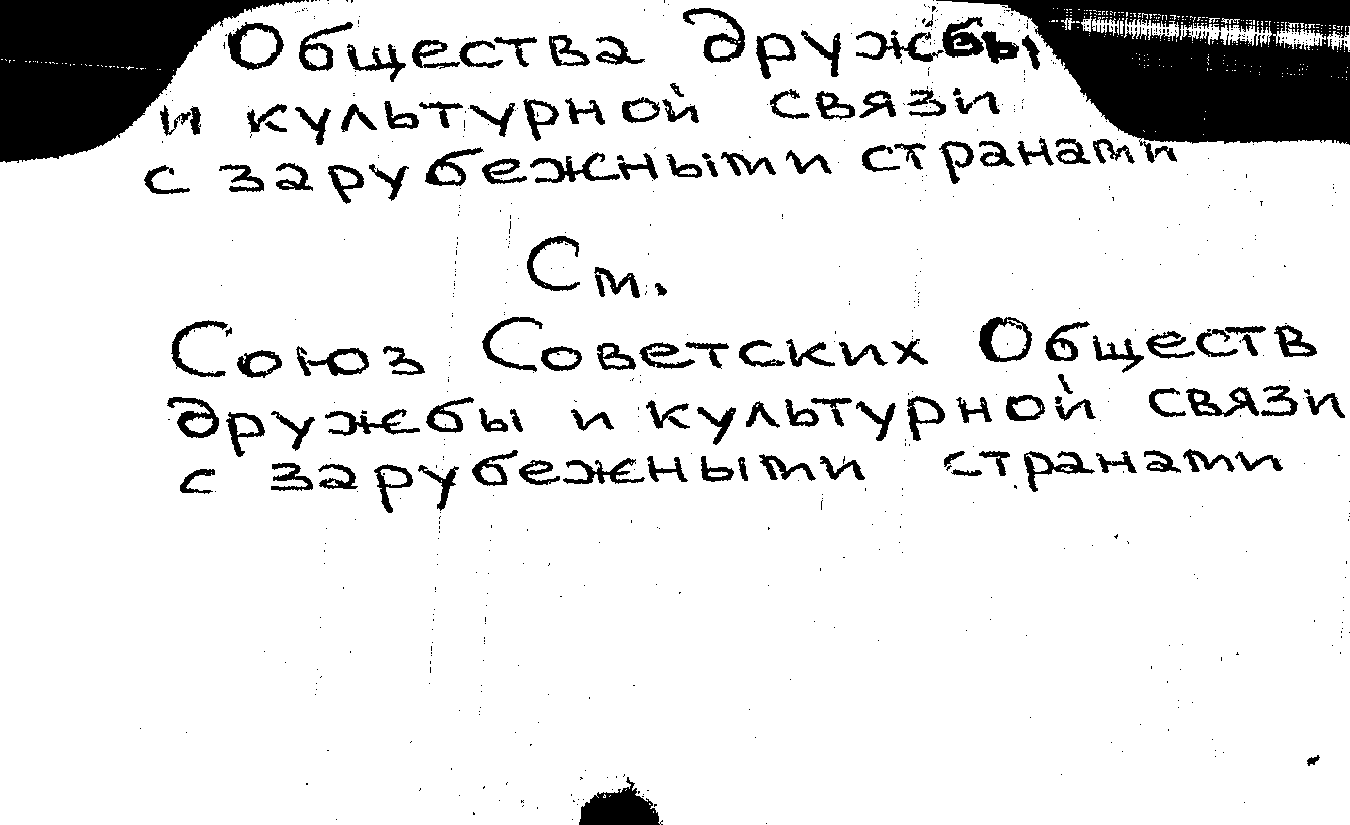 Общества дружбы
и культурной связи
с зарубежными странами
См.
Союз Советских Обществ
дружбы и культурной связи
с зарубежными странами